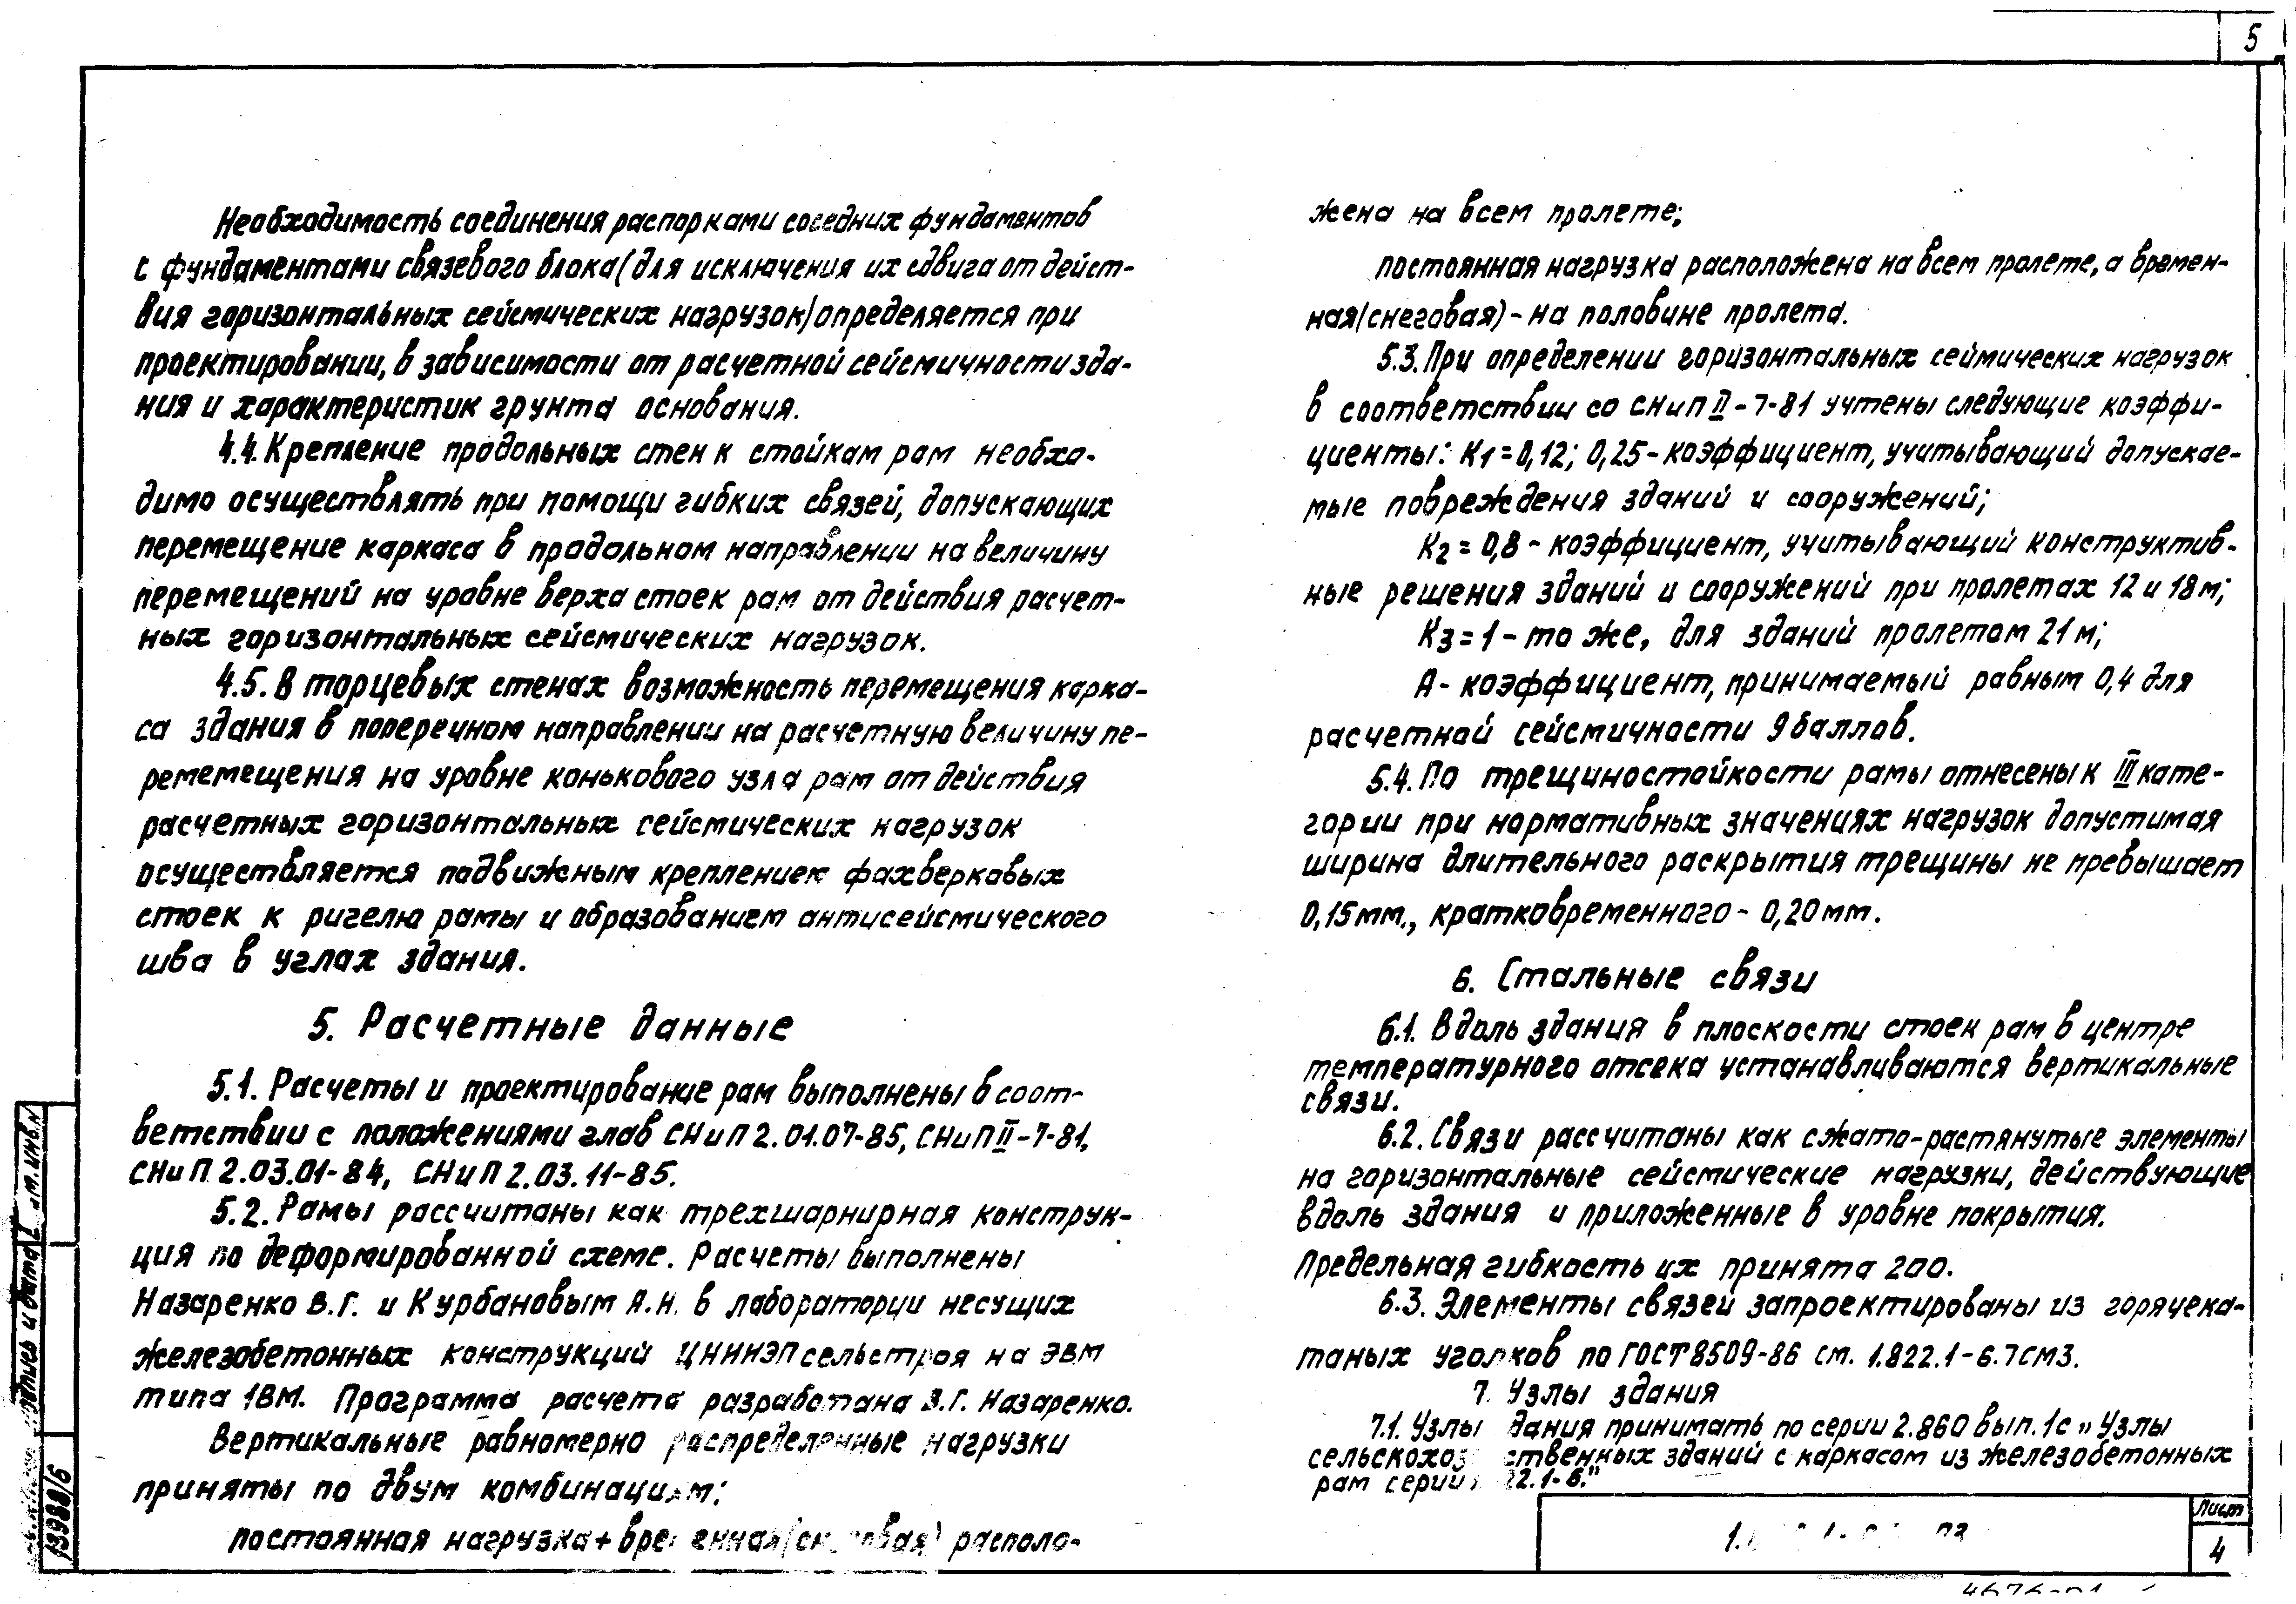 5
Необходимость соединения распорками соседних фундаментов
с фундаментами связевого блока (для исключения их сдвига от дейст-
вия горизонтальных сейсмических нагрузок) определяется при
проектировании, в зависимости от расчетной сейсмичности зда-
ния и характеристик грунта основания.
4.4. Крепление продольных стен к стойкам рам необхо-
димо осуществлять при помощи гибких связей, допускающих
перемещение каркаса в продольном направлении на величину
перемещений на уровне верха стоек рам от действия расчет-
ных горизонтальных сейсмических нагрузок.
4.5. В торцевых стенах возможность перемещения карка-
са здания в поперечном направлении на расчетную величину пе-
ремемещения на уровне конькового узла рам от действия
расчетных горизонтальных сейсмических нагрузок
осуществляется подвижным креплением фахверковых
стоек к ригелю рамы и образованием антисейсмического
шва в углах здания.
5. Расчетные данные
5.1. Расчеты и проектирование рам выполнены в соот-
ветствии с положениями глав СНиП 2.01.07-85, СНиП II-7-81,
СНиП 2.03.01-84, СНиП 2.03.11-85.
5.2. Рамы рассчитаны как трехшарнирная конструк-
ция по деформированной схеме. Расчеты выполнены
Назаренко В.Г. и Курбановым А.Н. в лаборатории несущих
железобетонных конструкций ЦНИИЭПсельстроя на ЭВМ
типа 1ВМ. Программа расчета разработана В.Г. Назаренко.
Вертикальные равномерно распределенные нагрузки
приняты по двум комбинациям:
постоянная нагрузка + располо-
жена на всем пролете;
постоянная нагрузка расположена на всем пролете, а времен-
ная (снеговая) - на половине пролета.
5.3. При определении горизонтальных сеймических нагрузок
в соответствии со СНиП II-7-81 учтены следующие коэффи-
циенты: К1=0,12; 0,25-коэффициент, учитывающий допускае-
мые повреждения зданий и сооружений;
К2=0,8 - коэффициент, учитывающий конструктив-
ные решения зданий и сооружений при пролетах 12 и 18 м;
К3=1 - то же, для зданий пролетом 21 м;
А - коэффициент, принимаемый равным 0,4 для
расчетной сейсмичности 9 баллов.
5.4. По трещиностойкости рамы отнесены к III кате-
гории при нормативных значениях нагрузок допустимая
ширина длительного раскрытия трещины не превышает
0,15мм., кратковременного - 0,20 мм.
6. Стальные связи
6.1. Вдоль здания в плоскости стоек рам в центре
температурного отсека устанавливаются вертикальные
связи.
6.2. Связи рассчитаны как сжато-растянутые элементы
на горизонтальные сейсмические нагрузки, действующие
вдоль здания и приложенные в уровне покрытия.
Предельная гибкость их принята 200.
6.3. Элементы связей запроектированы из горячека-
таных уголков по ГОСТ 8509-86 см. 1.822.1-6.7СМ3.
7. Узлы здания
7.1. Узлы принимать по серии 2.860 вып. 1с „Узлы
зданий с каркасом из железобетонных
рам серии
Лист
4
13988/6